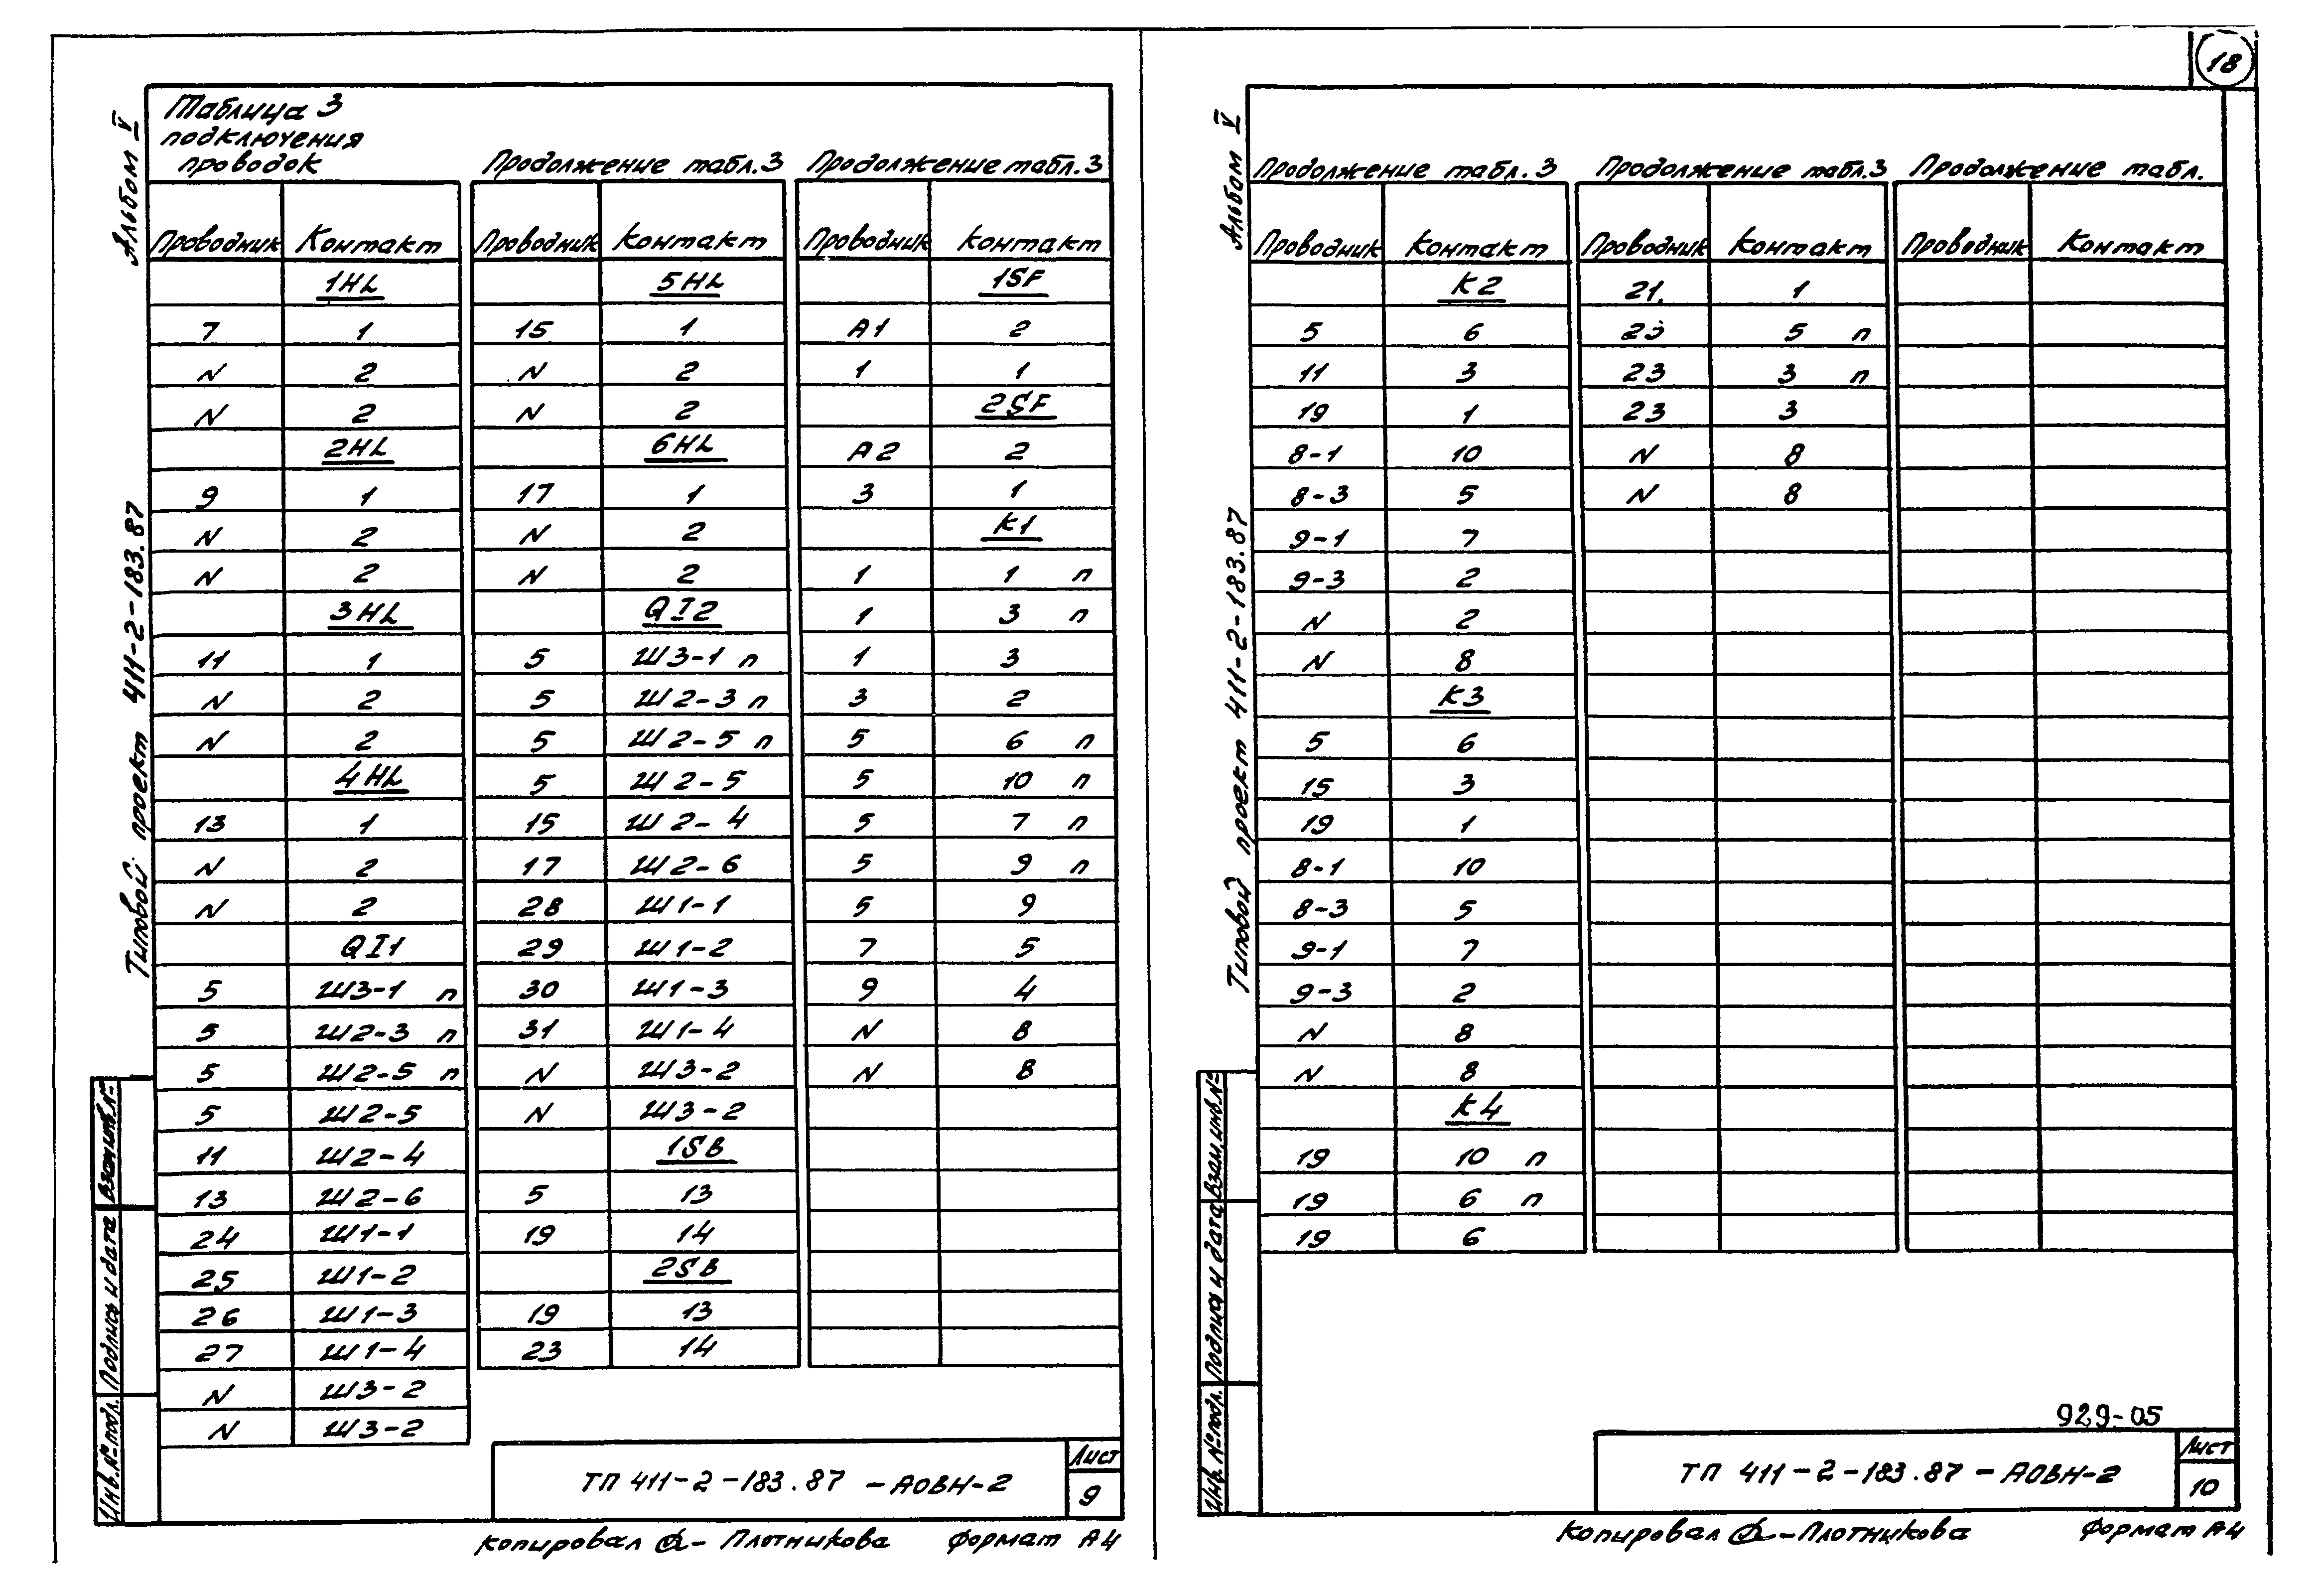 18
Альбом V
Типовой проект 411-2-183.87
Таблица 3
подключения
проводок
Проводник Контакт
1HL
7 1
N 2
N 2
2HL
9 1
N 2
N 2
3HL
11 1
N 2
N 2
4HL
13 1
N 2
N 2
QI1
5 Ш3-1 п
5 Ш2-3 п
5 Ш2-5 п
5 Ш2-5
11 Ш2-4
13 Ш2-6
24 Ш1-1
25 Ш1-2
26 Ш1-3
27 Ш1-4
N Ш3-2
N Ш3-2
Продолжение табл.3
Проводник Контакт
5HL
15 1
N 2
N 2
6HL
17 1
N 2
N 2
QI2
5 Ш3-1 п
5 Ш2-3 п
5 Ш2-5 п
5 Ш2-5
15 Ш2-4
17 Ш2-6
28 Ш1-1
29 Ш1-2
30 Ш1-3
31 Ш1-4
N Ш3-2
N Ш3-2
1SB
5 13
19 14
2SB
19 13
23 14
Продолжение табл.3
Проводник Контакт
1SF
А1 2
1 1
2SF
А2 2
3 1
К1
1 1 п
1 3 п
1 3
3 2
5 6 п
5 10 п
5 7 п
5 9 п
5 9
7 5
9 4
N 8
N 8
Взам инв.№
Подпись и дата
Инв.№ подл.
ТП 411-2-183.87 -АОВН-2
Лист
9
Копировал - Плотникова Формат А4
Альбом V
Типовой проект 411-2-183.87
Продолжение табл.3
Проводник Контакт
К2
5 6
11 3
19 1
8-1 10
8-3 5
9-1 7
9-3 2
N 2
N 8
К3
5 6
15 3
19 1
8-1 10
8-3 5
9-1 7
9-3 2
N 8
N 8
К4
19 10 п
19 6 п
19 6
Продолжение табл.3
Проводник Контакт
21. 1
23 5 п
23 3 п
23 3
N 8
N 8
Продолжение табл.
Проводник Контакт
Взам.инв.№
Подпись и дата
Инв.№ подл.
929-05
ТП 411-2-183.87 -АОВН-2
Лист
10
Копировал -Плотникова Формат А4